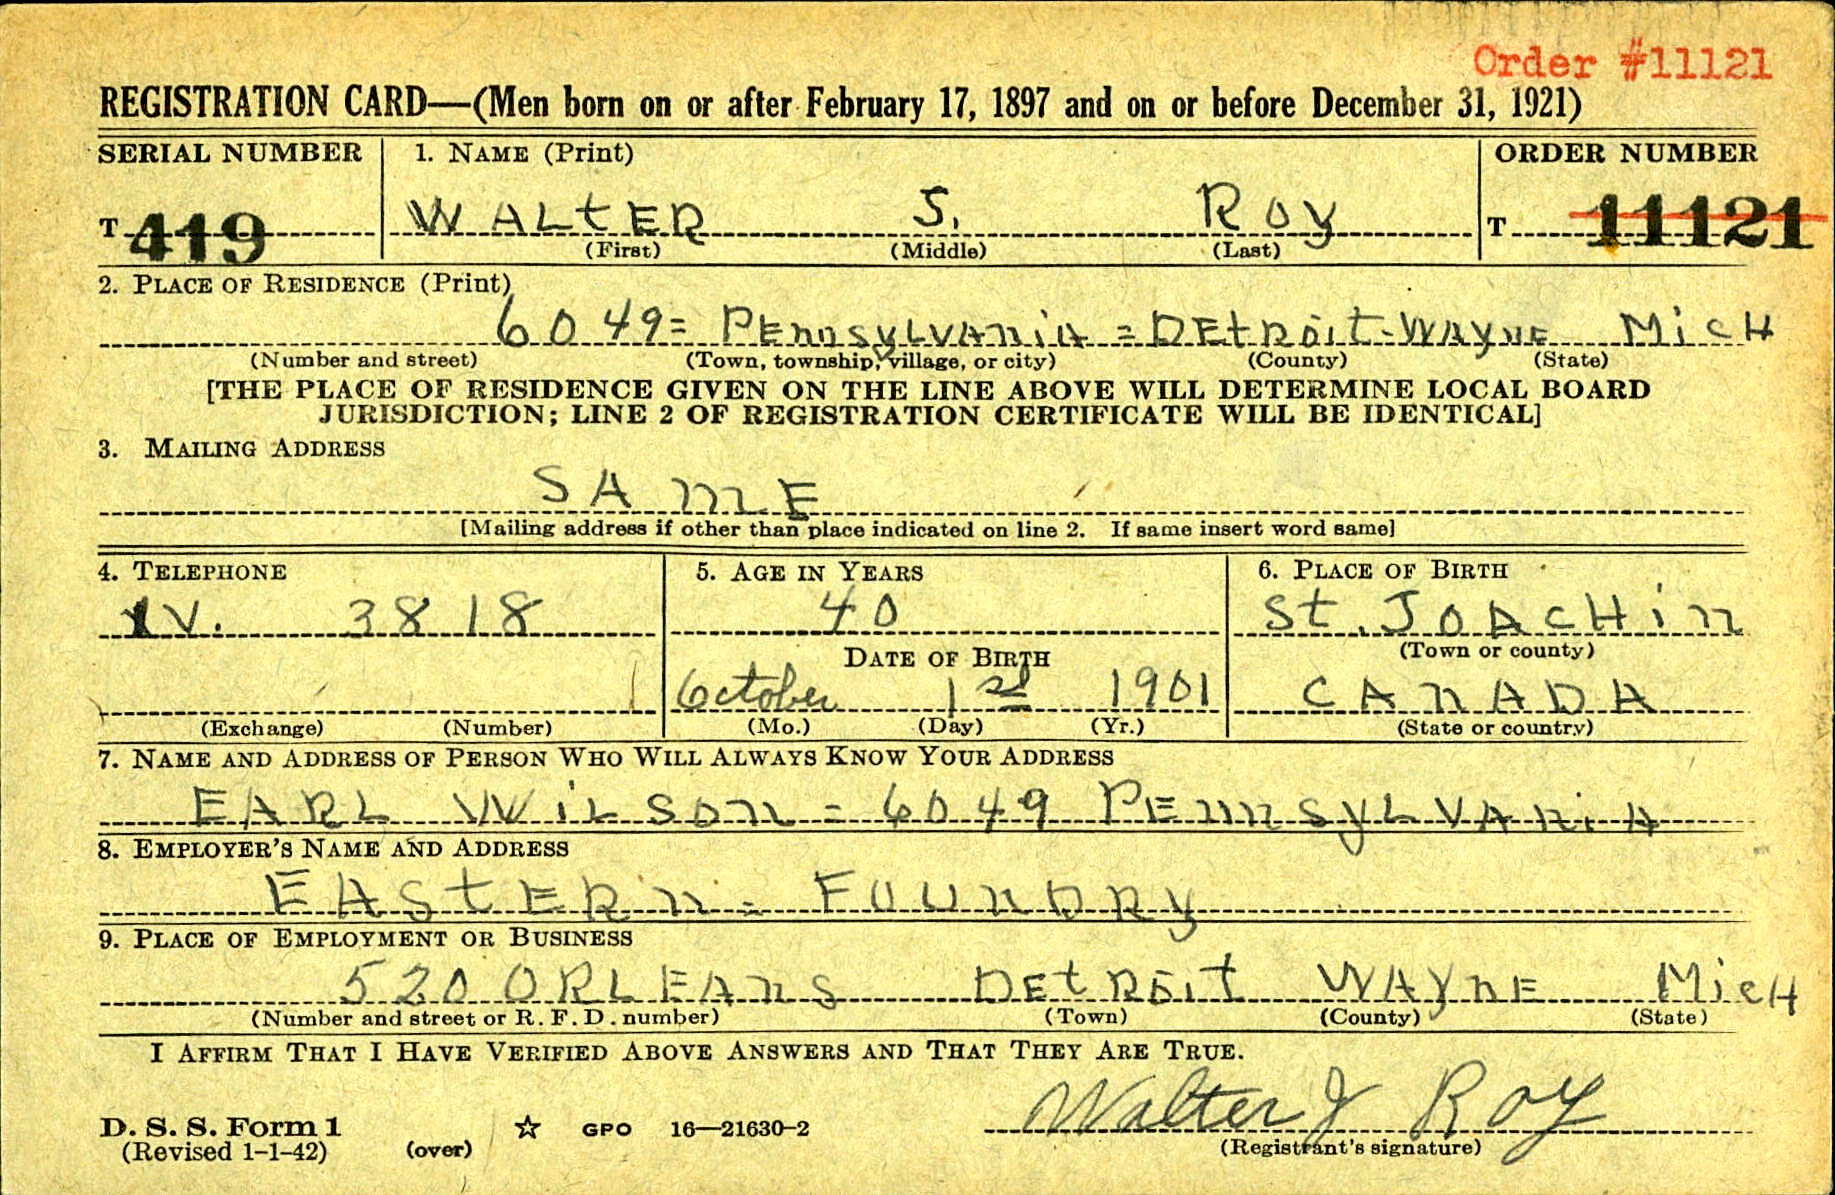 Order #11121
REGISTRATION CARD—(Men born on or after February 17, 1897 and on or before December 31, 1921)
SERIAL NUMBER 1. NAME (Print) ORDER NUMBER
T 419 WALTER J. ROY T 11121
(First) (Middle) (Last)
2. PLACE OF RESIDENCE (Print)
6049= PENNSYLVANIA = DETROIT-WAYNE MICH
(Number and street) (Town, township, village, or city) (County) (State)
[THE PLACE OF RESIDENCE GIVEN ON THE LINE ABOVE WILL DETERMINE LOCAL BOARD
JURISDICTION; LINE 2 OF REGISTRATION CERTIFICATE WILL BE IDENTICAL]
3. MAILING ADDRESS
SAME
[Mailing address if other than place indicated on line 2. If same insert word same]
4. TELEPHONE 5. AGE IN YEARS 6. PLACE OF BIRTH
IV. 3818 40 ST. JOACHIN
DATE OF BIRTH (Town or county)
October 1st 1901 CANADA
(Exchange) (Number) (Mo.) (Day) (Yr.) (State or country)
7. NAME AND ADDRESS OF PERSON WHO WILL ALWAYS KNOW YOUR ADDRESS
EARL WILSON - 6049 PENNSYLVANIA
8. EMPLOYER'S NAME AND ADDRESS
EASTERN - FOUNDRY
9. PLACE OF EMPLOYMENT OR BUSINESS
520 ORLEANS DETROIT WAYNE MICH
(Number and street or R. F. D. number) (Town) (County) (State)
I AFFIRM THAT I HAVE VERIFIED ABOVE ANSWERS AND THAT THEY ARE TRUE.
Walter J Roy
D. S. S. Form 1 ☆ GPO 16—21630-2
(Revised 1-1-42) (over) (Registrant's signature)